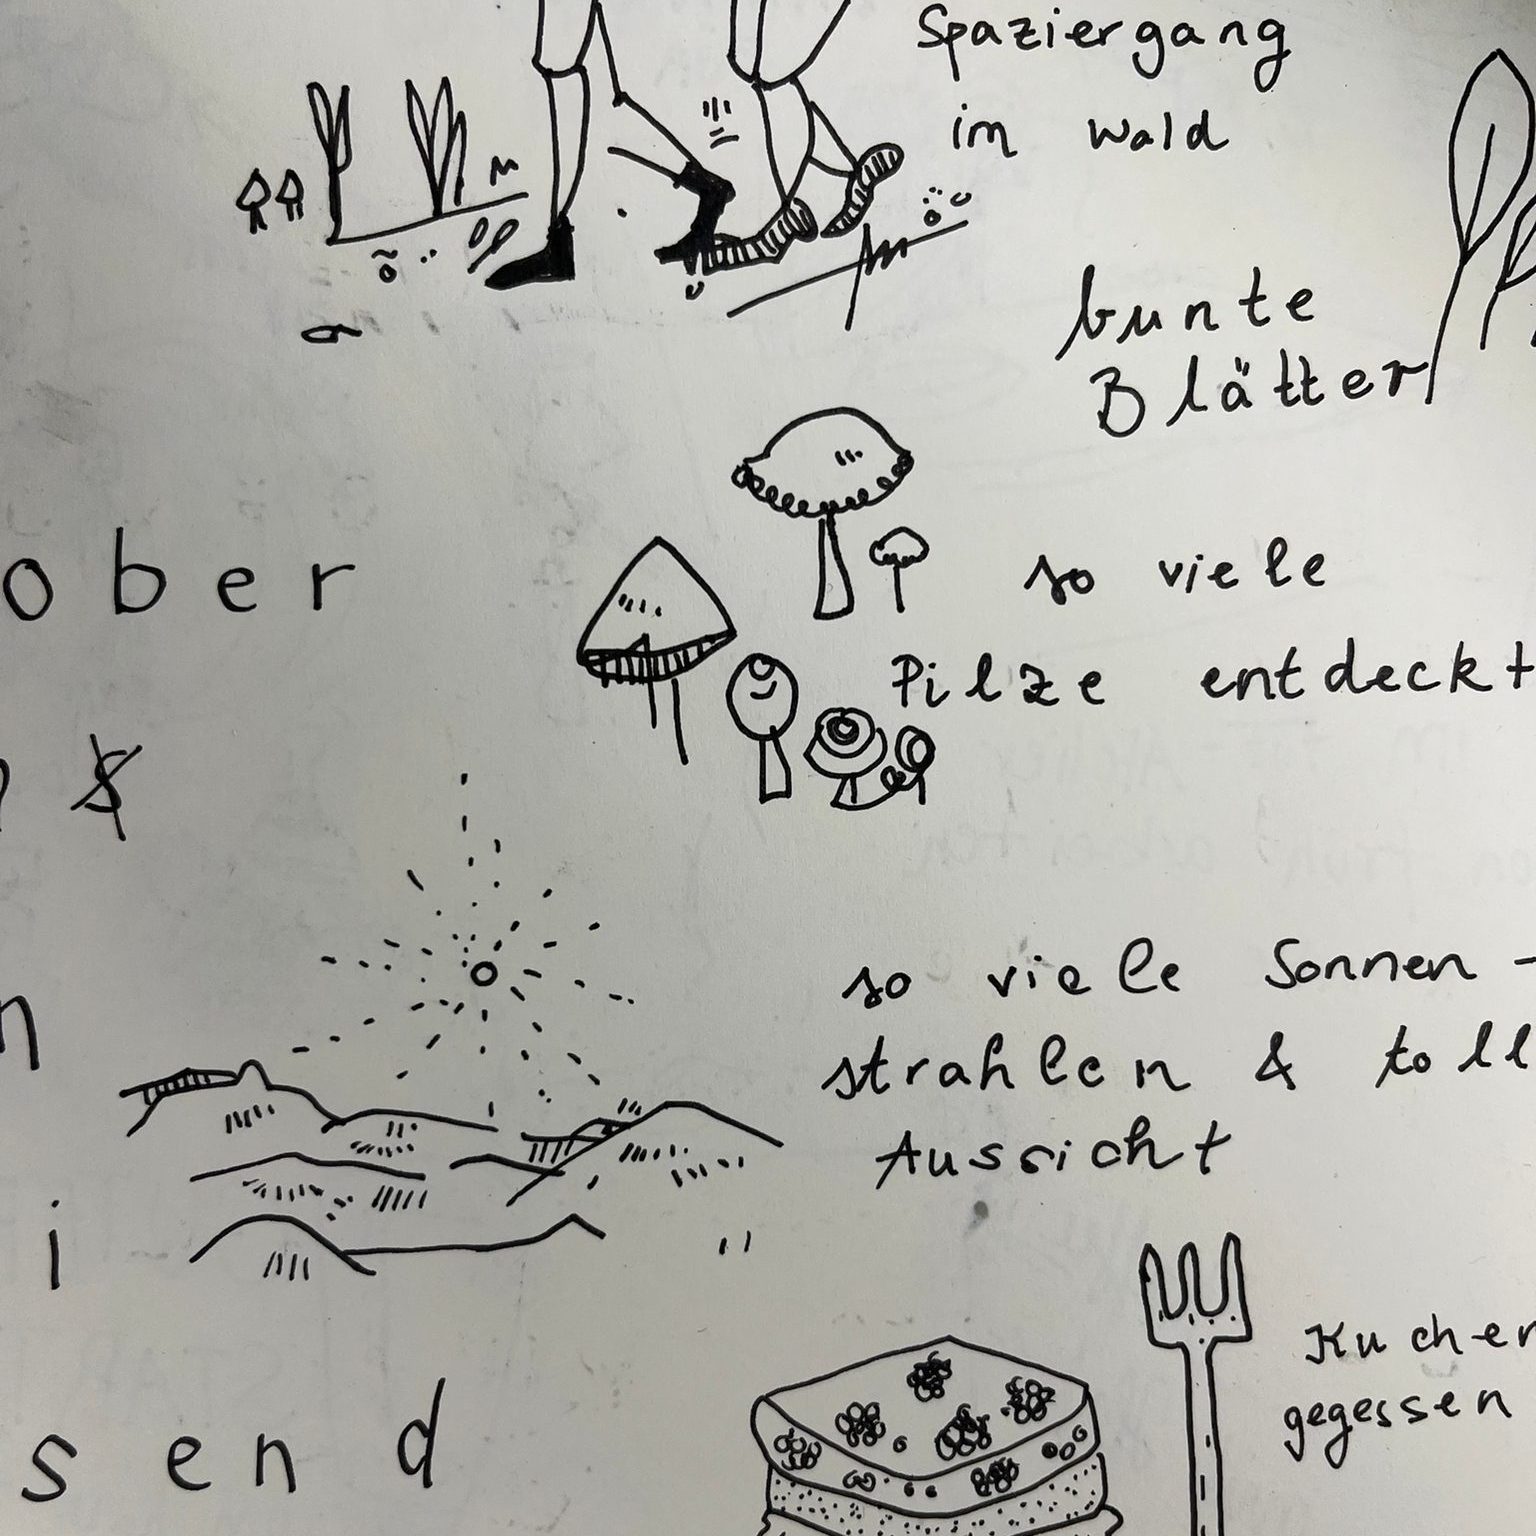 Spaziergang
im Wald
bunte
Blätter
ober
so viele
Pilze entdeckt
n
so viele Sonnen-
strahlen & toll
Aussicht
i
Kuchen
gegessen
send